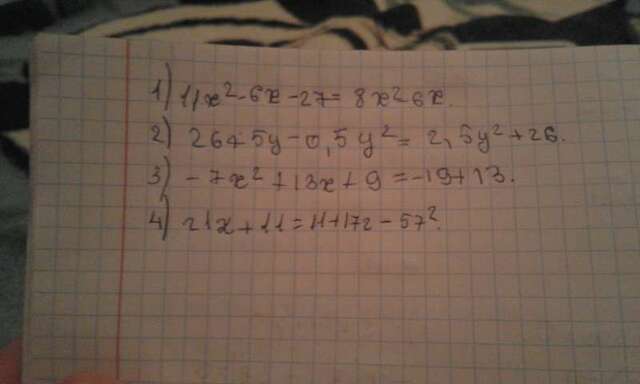 1) 11x²-6x-27=8x²6x.
2) 26+5y-0,5y²=2,5y²+26.
3) -7x²+13x+9=-19+13.
4) 21x+11=11+17z-57².